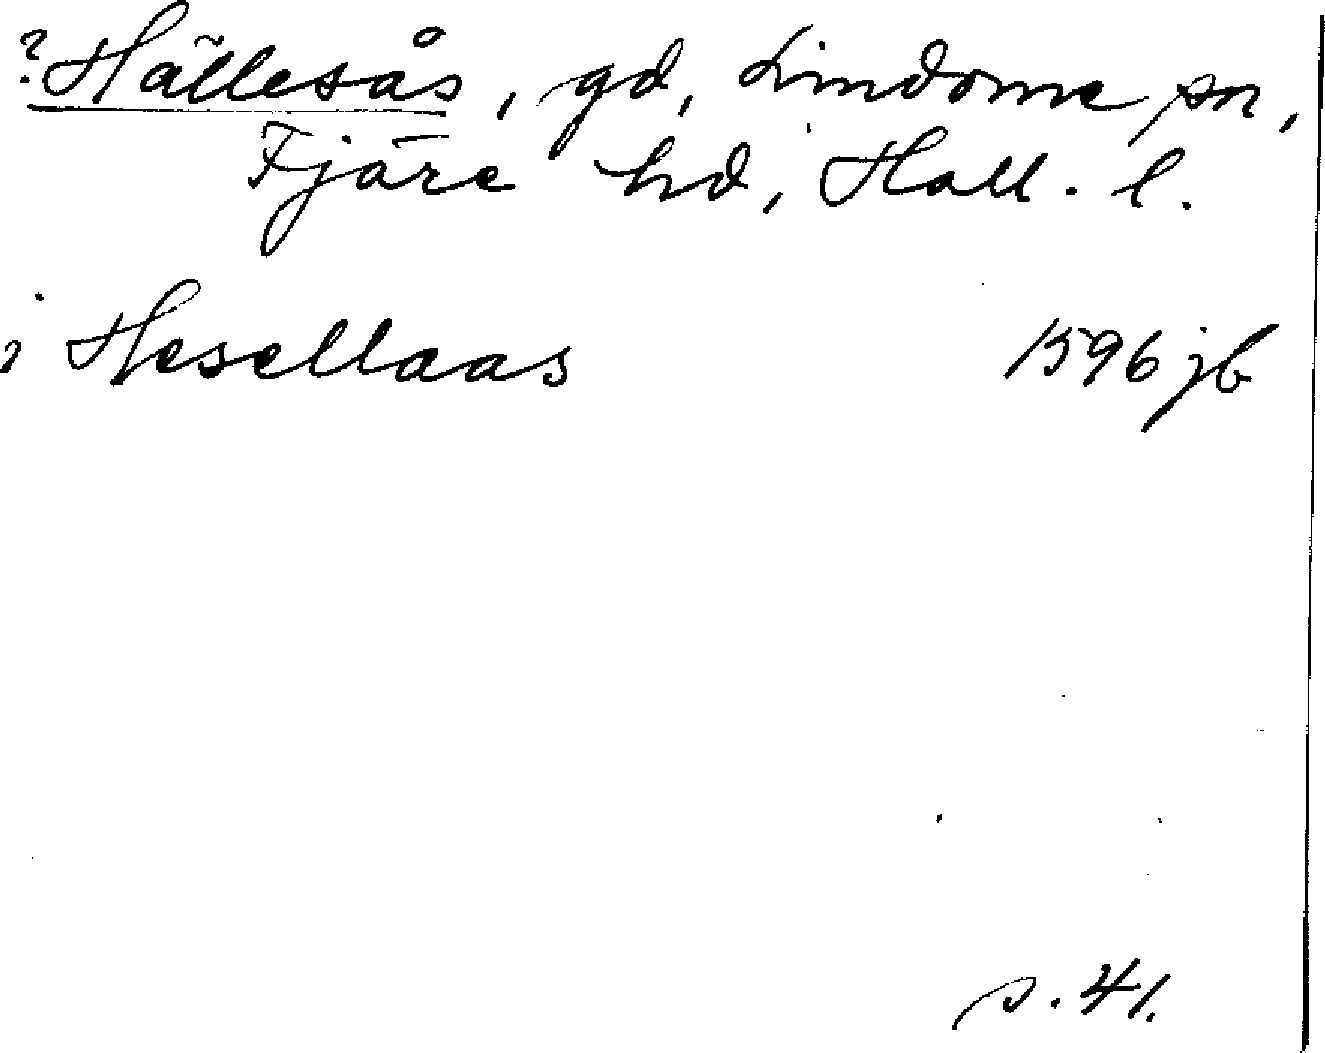 ? Hällesås, gd, Lindome sn,
Fjäre hd, Hall. l.
i Hesellaas 1596 jb
s. 41.